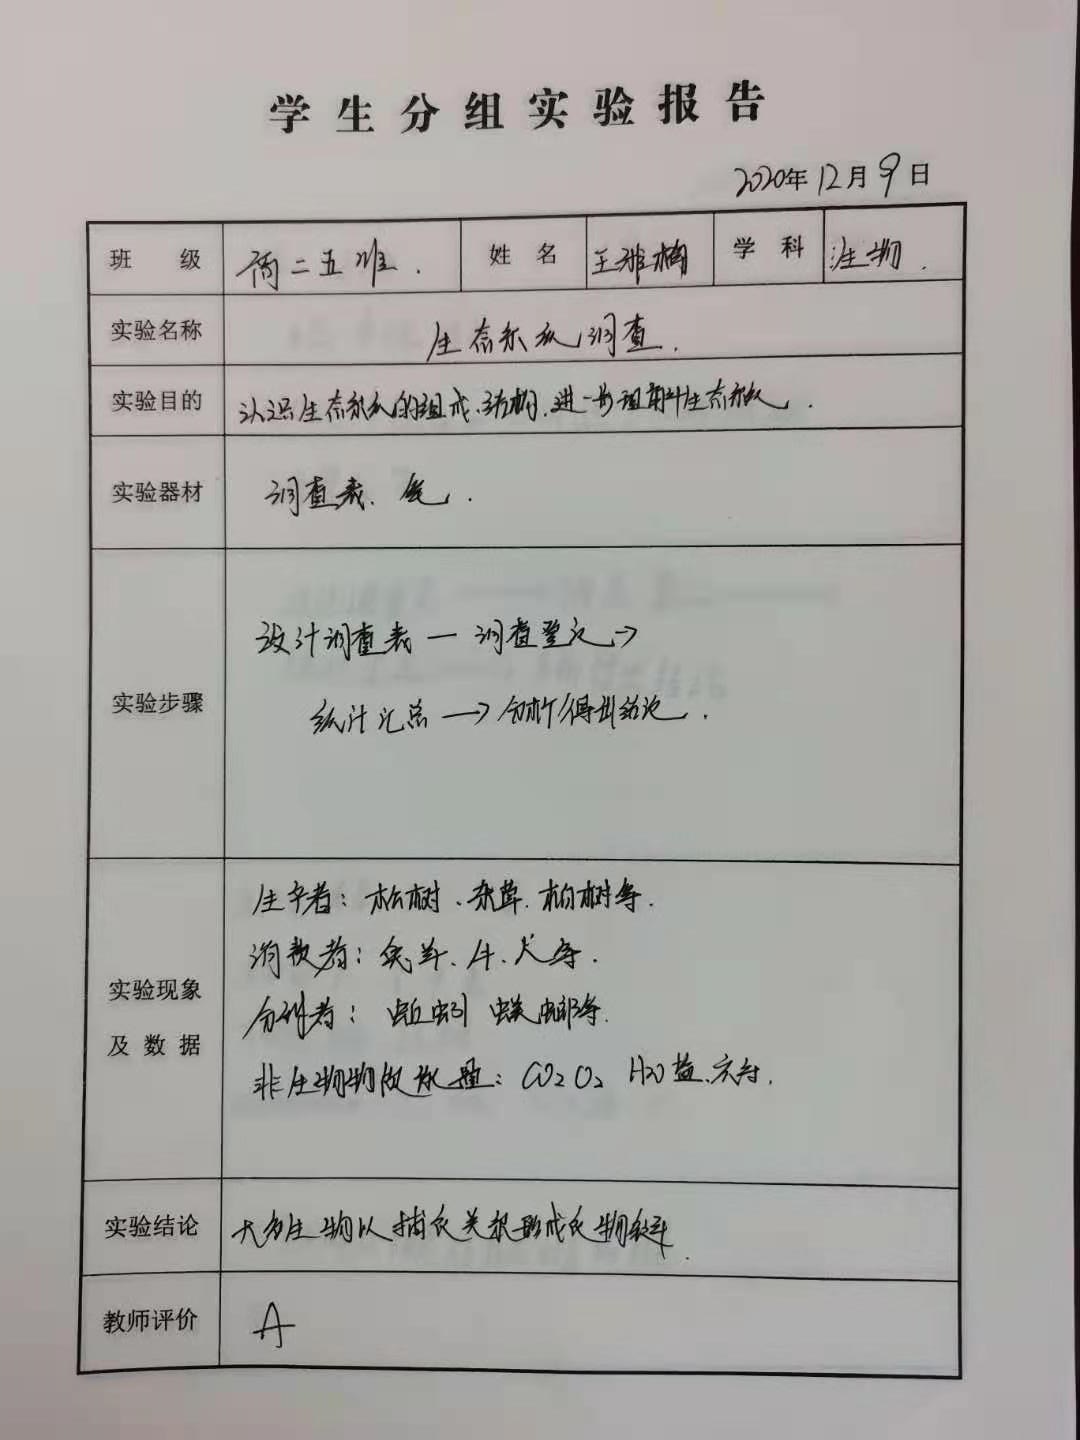 学生分组实验报告
2020年12月9日
班 级 高二五班. 姓 名 王雅楠 学 科 生物.
实验名称 生态系统调查.
实验目的 认识生态系统的组成、结构,进一步理解生态系统.
实验器材 调查表、笔.
实验步骤
设计调查表 — 调查登记→
统计汇总 → 分析得出结论.
实验现象
及 数 据
生产者: 松树、杂草、柏树等.
消费者: 兔、羊、牛、犬等.
分解者: 蚯蚓 蜣螂等.
非生物物质能量: CO2 O2 H2O 盐、等.
实验结论 大多生物以捕食关系形成食物链.
教师评价 A